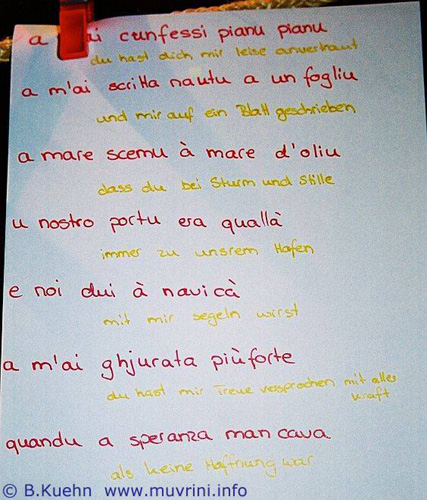 a ai cunfessi pianu pianu
du hast dich mir leise anvertraut
a m'ai scritta nautu a un fogliu
und mir auf ein Blatt geschrieben
a mare scemu à mare d'oliu
dass du bei Sturm und Stille
u nostro portu era quallà
immer zu unsrem Hafen
e noi dui à navicà
mit mir segeln wirst
a m'ai ghjurata piùforte
du hast mir Treue versprochen mit aller
Kraft
quandu a speranza mancava
als keine Hoffnung war
© B.Kuehn www.muvrini.info